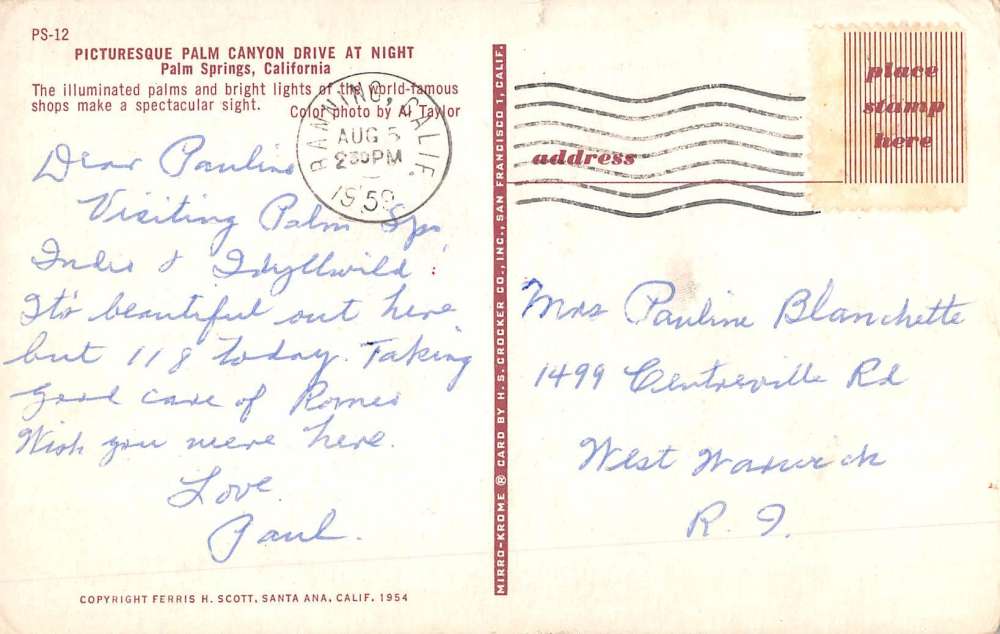 PS-12
PICTURESQUE PALM CANYON DRIVE AT NIGHT
Palm Springs, California
The illuminated palms and bright lights of the world-famous
shops make a spectacular sight.
Color photo by Al Taylor
BANNING, CALIF.
AUG 5
2 30 PM
1959
Dear Pauline
Visiting Palm Spr,
Indio & Idyllwild.
It's beautiful out here
but 118 today. Taking
good care of Romeo
Wish you were here.
Love.
Paul.
COPYRIGHT FERRIS H. SCOTT, SANTA ANA, CALIF. 1954
MIRRO-KROME ® CARD BY H. S. CROCKER CO., INC., SAN FRANCISCO 1, CALIF.
place
stamp
here
address
Mrs Pauline Blanchette
1499 Centreville Rd
West Warwick
R. I.